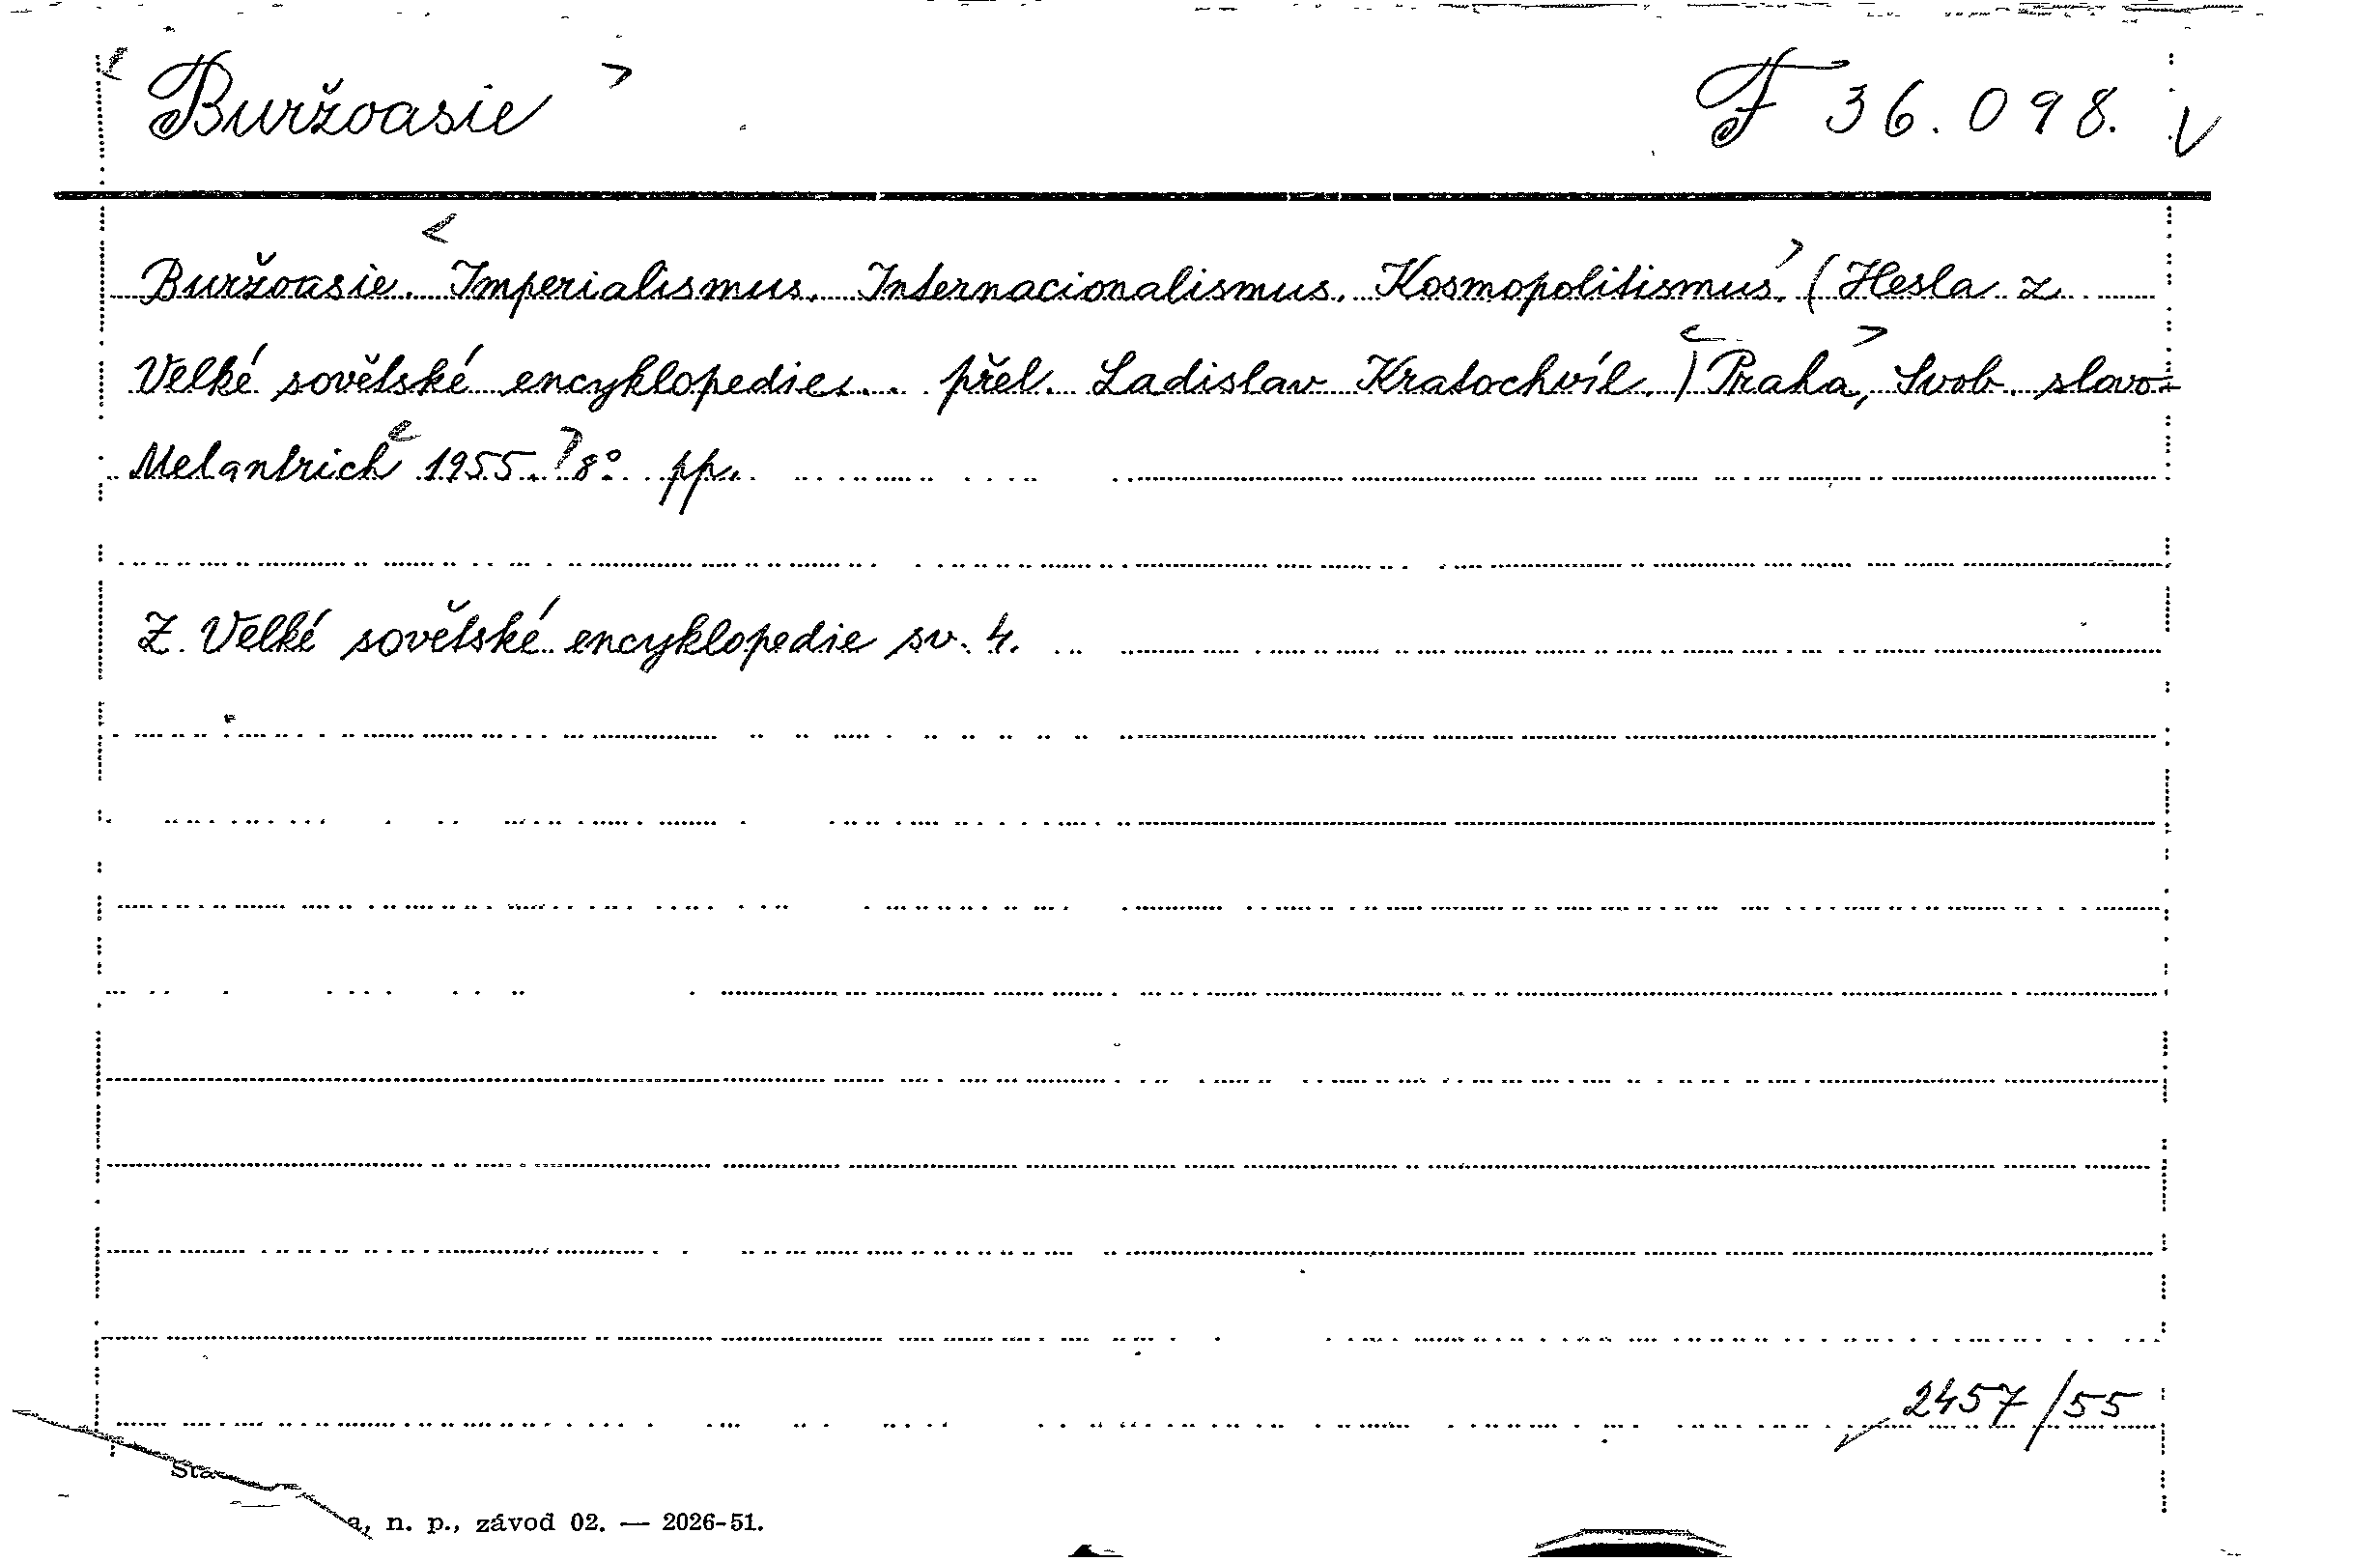 Buržoasie F 36.098. V
Buržoasie. Imperialismus. Internacionalismus. Kosmopolitismus. (Hesla z
Velké sovětské encyklopedie. přel. Ladislav Kratochvíl.) Praha, Svob. slovo-
Melantrich 1955. 8° pp.
Z Velké sovětské encyklopedie sv. 4.
2457/55
a, n. p., závod 02. — 2026-51.